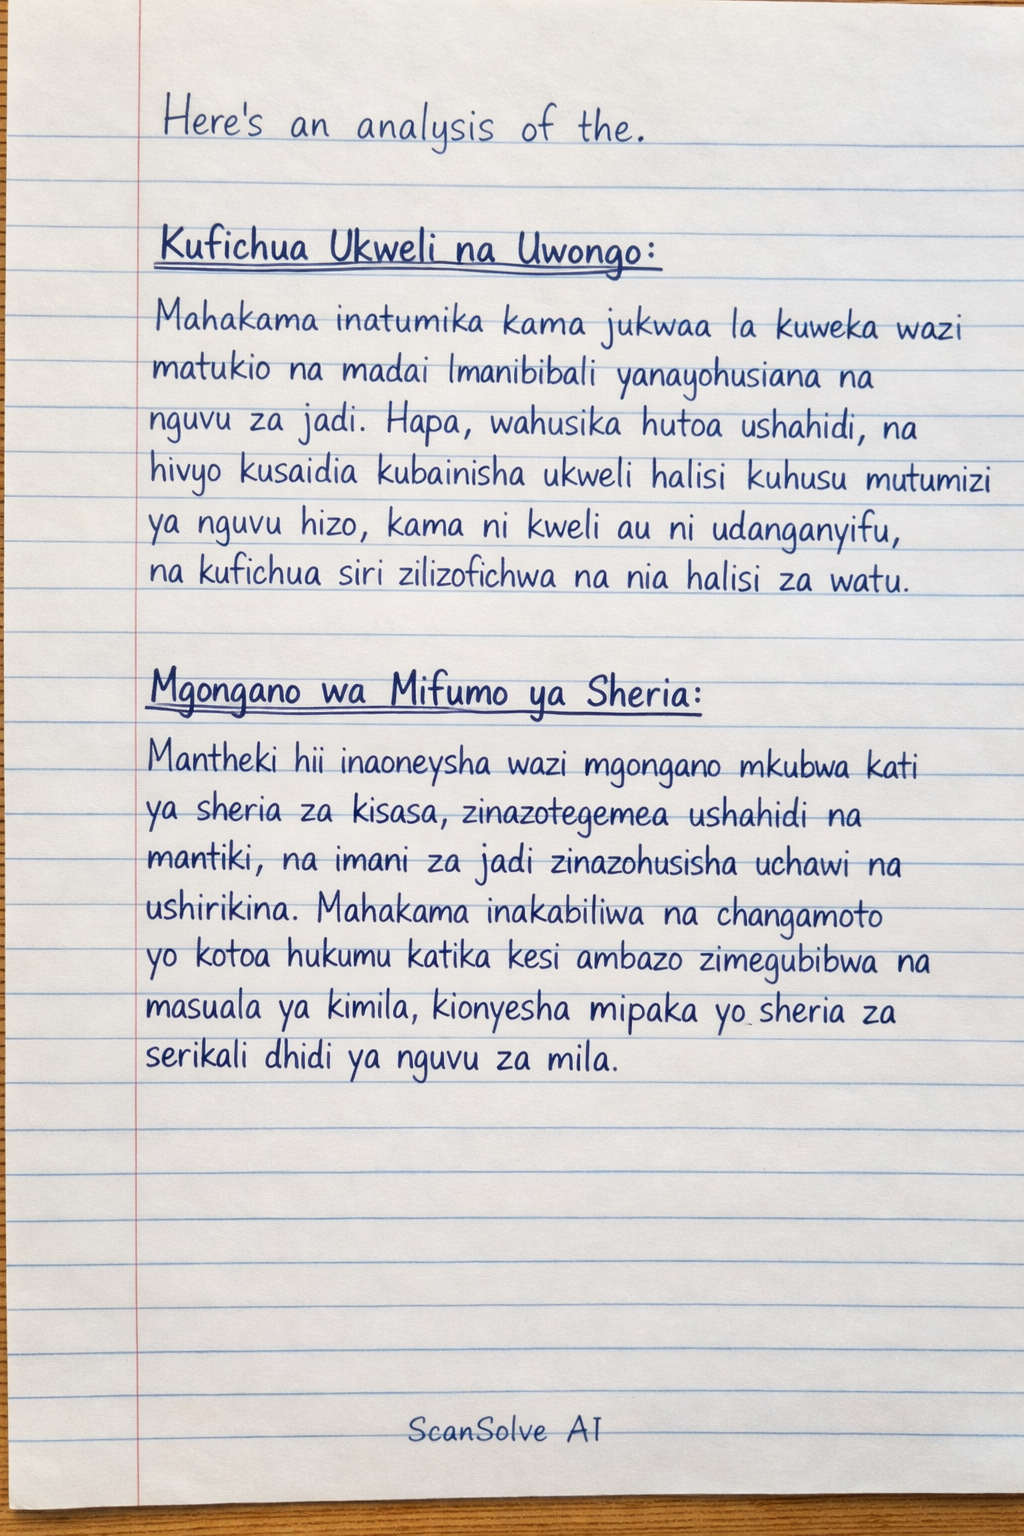 Here's an analysis of the.
Kufichua Ukweli na Uwongo:
Mahakama inatumika kama jukwaa la kuweka wazi
matukio na madai lmanibibali yanayohusiana na
nguvu za jadi. Hapa, wahusika hutoa ushahidi, na
hivyo kusaidia kubainisha ukweli halisi kuhusu mutumizi
ya nguvu hizo, kama ni kweli au ni udanganyifu,
na kufichua siri zilizofichwa na nia halisi za watu.
Mgongano wa Mifumo ya Sheria:
Mantheki hii inaoneysha wazi mgongano mkubwa kati
ya sheria za kisasa, zinazotegemea ushahidi na
mantiki, na imani za jadi zinazohusisha uchawi na
ushirikina. Mahakama inakabiliwa na changamoto
yo kotoa hukumu katika kesi ambazo zimegubibwa na
masuala ya kimila, kionyesha mipaka yo sheria za
serikali dhidi ya nguvu za mila.
ScanSolve AI